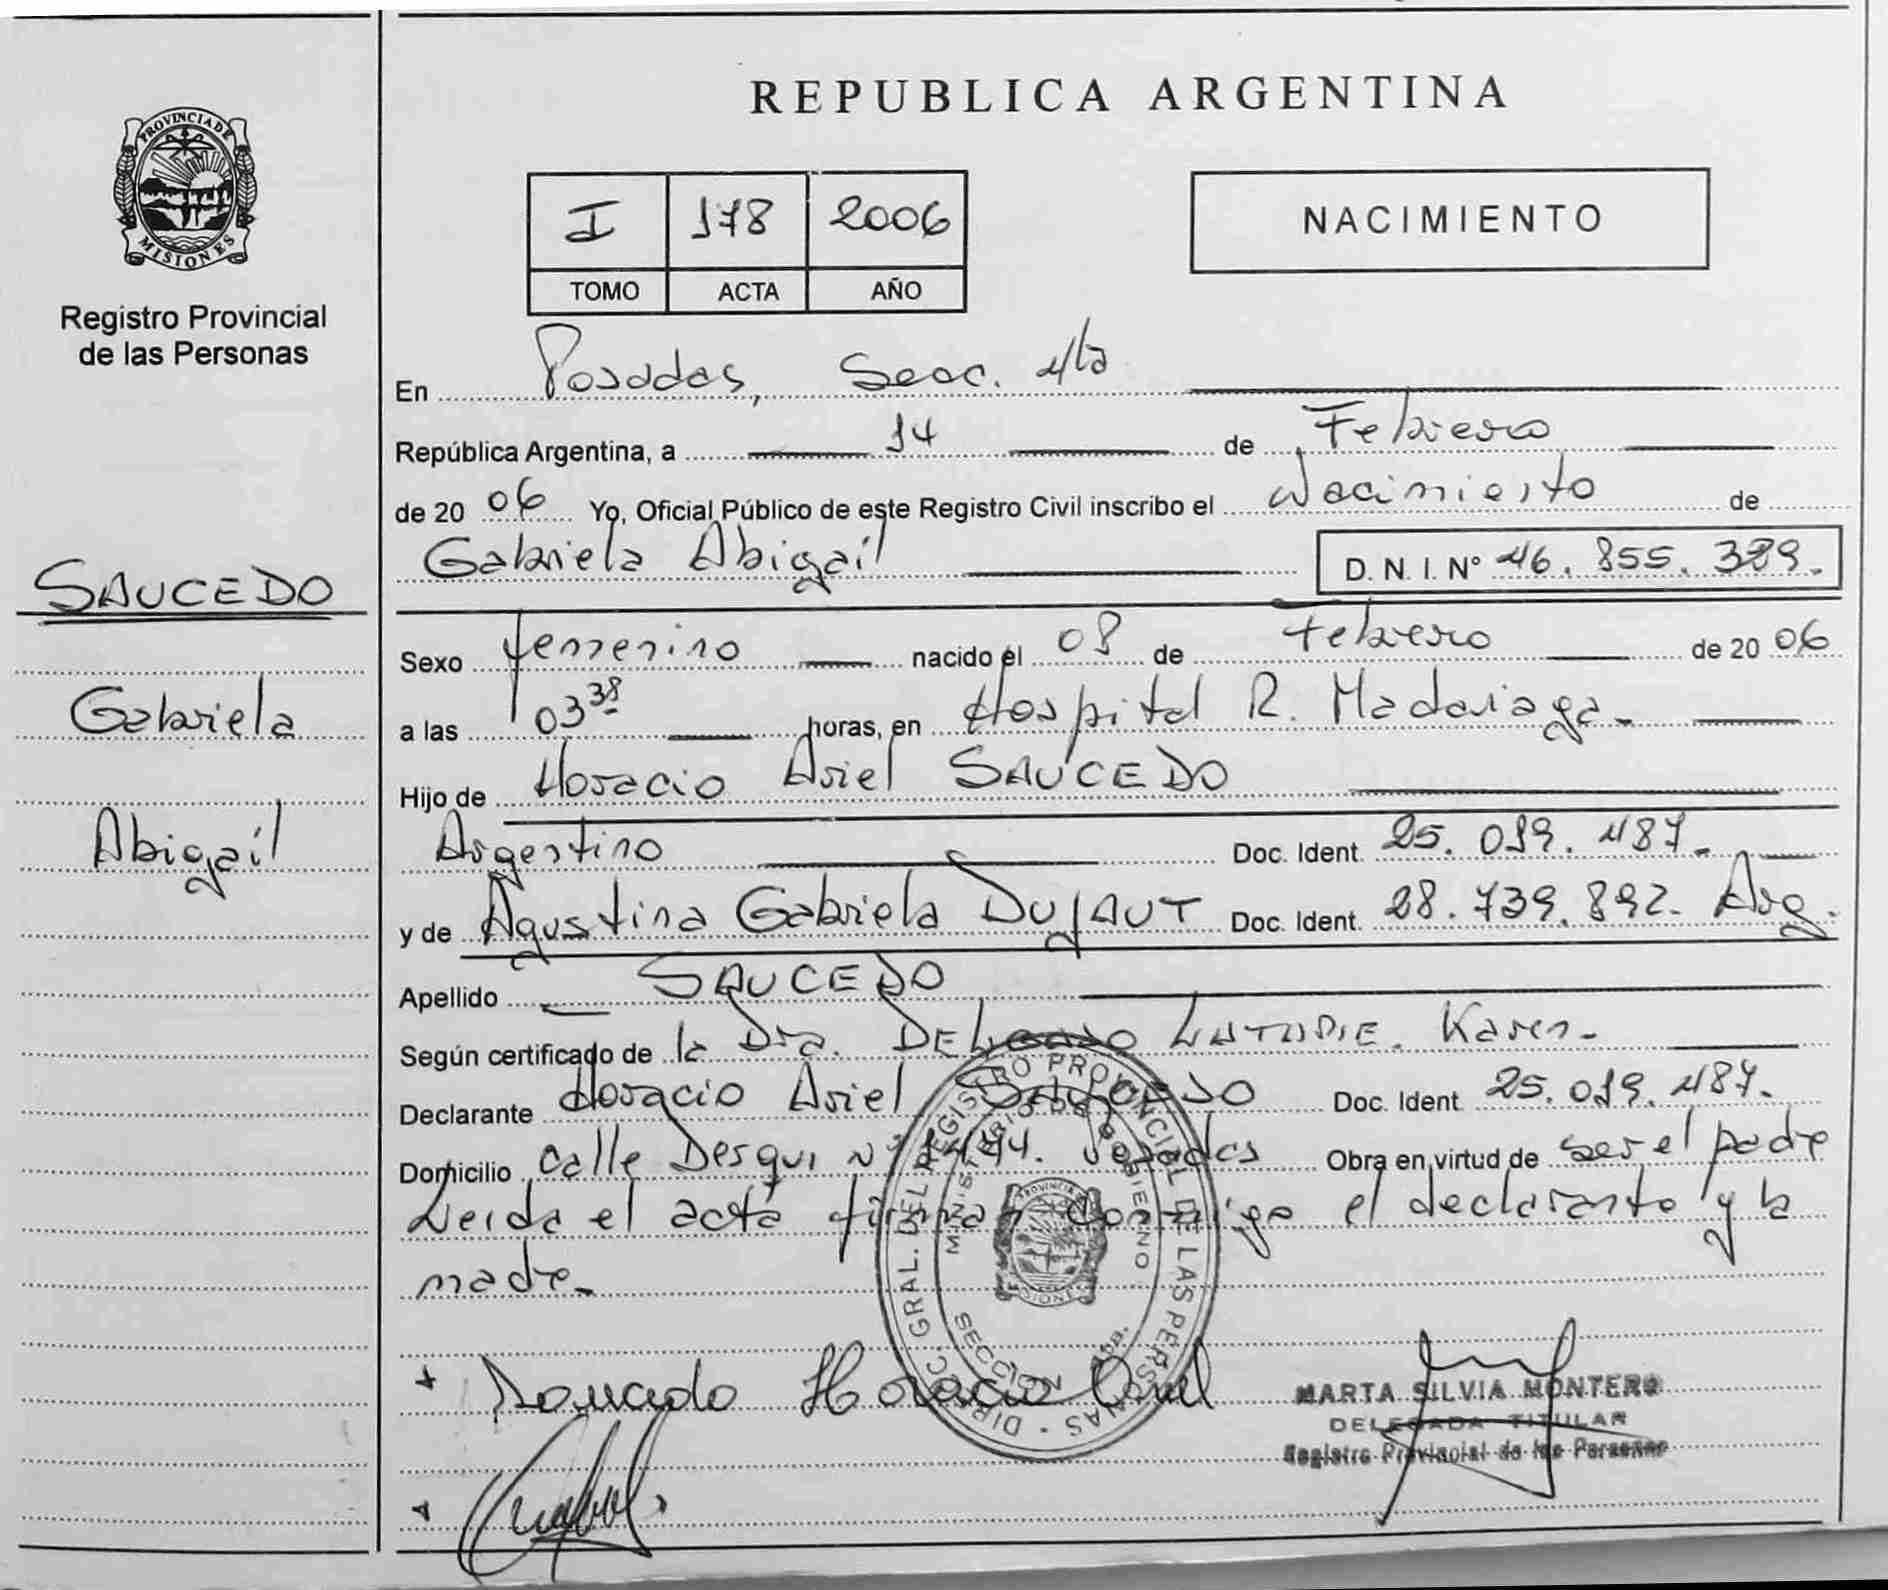 REPUBLICA ARGENTINA
PROVINCIA DE
MISIONES
Registro Provincial
de las Personas
I 178 2006
TOMO ACTA AÑO
NACIMIENTO
En Posadas, Secc. 4ta
República Argentina, a 14 de Febrero
de 2006 Yo, Oficial Público de este Registro Civil inscribo el Nacimiento de
Gabriela Abigail D. N. I. N° 46.855.389.
SAUCEDO
Gabriela
Abigail
Sexo femenino nacido el 08 de Febrero de 2006
a las 03 38 horas, en Hospital R. Madariaga.
Hijo de Horacio Ariel SAUCEDO
Argentino Doc. Ident. 25.019.487.
y de Agustina Gabriela DUJAUT Doc. Ident. 28.739.892. Arg.
Apellido SAUCEDO
Según certificado de la Dra. DELGADO Karen.
Declarante Horacio Ariel SAUCEDO Doc. Ident 25.019.487.
Domicilio calle Posadas Obra en virtud de ser el padre
Leida el acta firman conmigo el declarante y la
madre.
DIRECC. GRAL. DEL REGISTRO PROVINCIAL DE LAS PERSONAS
MINISTERIO DE GOBIERNO
PROVINCIA
MISIONES
SECCION
Horacio Ariel
MARTA SILVIA MONTERO
DELEGADA TITULAR
Registro Provincial de las Personas